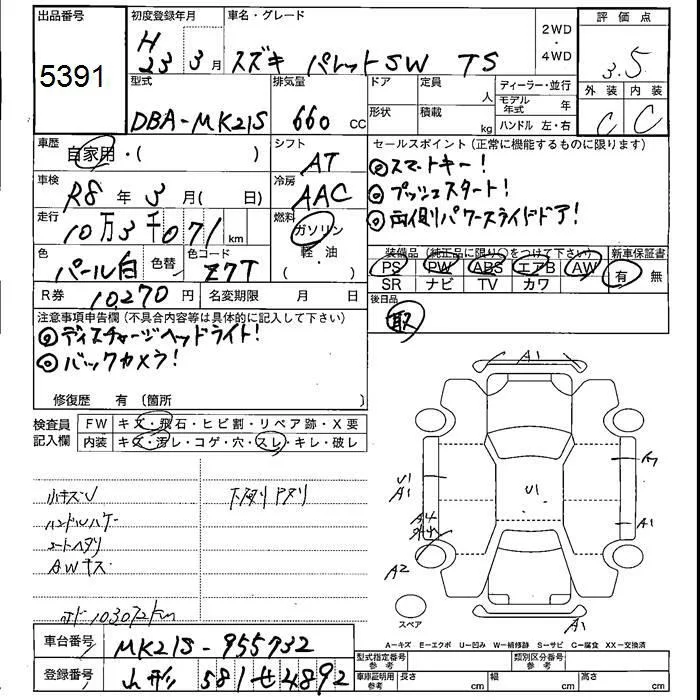 出品番号 初度登録年月 車名・グレード 2WD ・ 4WD 評価点
5391 H 23 3月 スズキ パレットSW TS 3.5
型式 排気量 ドア 定員 人 ディーラー・並行 外装 内装
DBA-MK21S 660 CC 形状 積載 kg モデル年式 年 C C
ハンドル 左・右
車歴 シフト セールスポイント(正常に機能するものに限ります)
自家用・( ) AT ◎スマートキー!
車検 冷房 ◎プッシュスタート!
R8年 3月( 日) AAC ◎両側パワースライドドア!
走行 燃料
10万3千071 km ガソリン
色 色替 色コード 軽・油 装備品(純正品に限り○をつけて下さい) 新車保証書
パール白 Z7T ( ) PS PW ABS エアB AW 有 無
SR ナビ TV カワ
R券 10270円 名変期限 月 日 後日品
取
注意事項申告欄(不具合内容等は具体的に記入して下さい)
◎ディスチャージヘッドライト!
◎バックカメラ!
修復歴 有(箇所 )
検査員記入欄 FW キズ・飛石・ヒビ割・リペア跡・X要
内装 キズ・汚レ・コゲ・穴・スレ・キレ・破レ
小キズU
ハンドルハゲ
シートヘタリ
AWキス
103072km
A1
U1
A1
U1
A4
A1
A2
スペア
A1
A=キズ E=エクボ U=凹み W=補修跡 S=サビ C=腐食 XX=交換済
車台番号 MK21S-955732 型式指定番号 参考 類別区分番号 参考
登録番号 山形 581 せ 4892 車庫証明用 参考 長さ cm 幅 cm 高さ cm